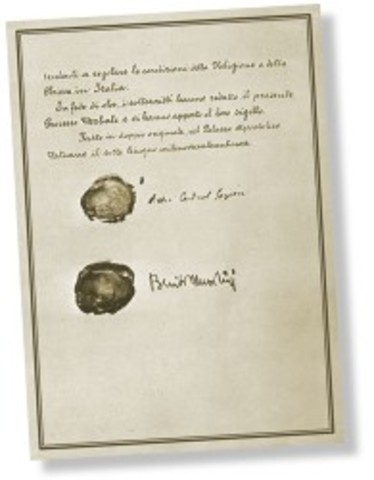 tendenti a regolare le condizioni della Religione e della
Chiesa in Italia.
In fede di che, i sottoscritti hanno redatto il presente
Processo Verbale e vi hanno apposto il loro sigillo.
Fatto in doppio originale, nel Palazzo Apostolico
Vaticano il sette Giugno millenovecentoventinove.
Card. Gasparri
Benito Mussolini